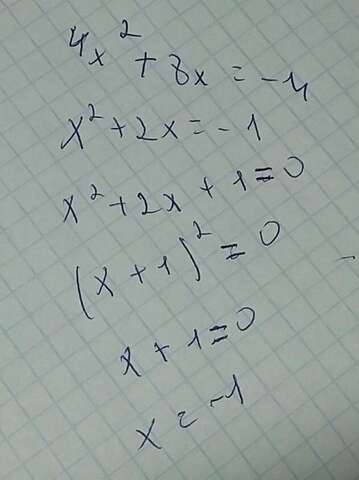 4x² + 8x = -4
x² + 2x = -1
x² + 2x + 1 = 0
(x + 1)² = 0
x + 1 = 0
x = -1